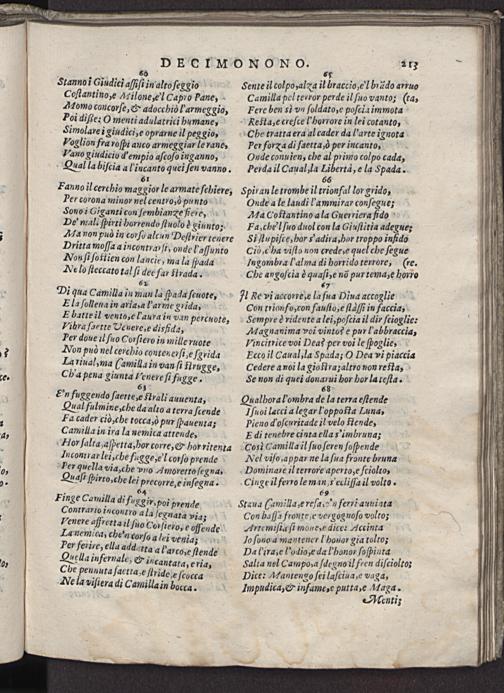 DECIMONONO. 213
60
Stanno i Giudici assisi in alto seggio
Costantino, e Milone, e'l Capro Pane,
Momo concorse, & adocchiò l'armeggio,
Poi disse: O menti adulatrici humane,
Simolare i giudici, e oprarne il peggio,
Voglion fra rospi anco armeggiar le rane,
Vano giudicio d'empio ascoso inganno,
Qual la biscia a l'incanto quei sen vanno.
61
Fanno il cerchio maggior le armate schiere,
Per corona minor nel centro, ò punto
Sono i Giganti con sembianze fiere,
De' mali spirti horrendo stuolo è giunto;
Ma non può in corso alcun Destrier tenere
Dritta mossa a incontrarsi, onde l'assunto
Non si sostien con lancie, ma la spada
Ne lo steccato tal si dee far strada.
62
Di qua Camilla in man la spada scuote,
E la sollena in aria, e l'arme grida,
E batte il vento, e l'aura in van percuote,
Vibra saette Venere, e disfida,
Per doue il suo Corsiero in mille ruote
Non può nel cerchio contenersi, e sgrida
La riual, ma Camilla in van si strugge,
Ch'a pena giunta Venere si fugge.
63
E'n fuggendo saette, e strali auuenta,
Qual fulmine, che da alto a terra scende
Fa cader ciò, che tocca, ò pur spauenta;
Camilla in ira la nemica attende,
Hor salta, aspetta, hor corre, & hor ritenta
Incontrar lei, che fugge, e'l corso prende
Per quella via, che vno Amoretto segna,
Quasi spirto, che lei precorre, e insegna.
64
Finge Camilla di fuggir, poi prende
Contrario incontro a la segnata via;
Venere affretta il suo Corsiero, e offende
La nemica, che'n corso a lei venia;
Per ferire, ella addatta a l'arco, e stende
Quella infernale, & incantata, e ria,
Che pennuta saetta, e stride, e scocca
Ne la visiera di Camilla in bocca.
65
Sente il colpo, alza il braccio, e'l brãdo arruo
Camilla pel terror perde il suo vanto; (ta,
Fere ben sì vn soldato, e poscia immota
Resta, e cresce l'horrore in lei cotanto,
Che tratta era al cader da l'arte ignota
Per forza di saetta, ò per incanto,
Onde conuien, che al primo colpo cada,
Perda il Caual, la Libertà, e la Spada.
66
Spiran le trombe il trionfal lor grido,
Onde a le laudi l'ammirar consegue;
Ma Costantino a la Guerriera fido
Fa, che'l suo duol con la Giustitia adegue;
Si stupisce, hor s'adira, hor troppo infido
Ciò, c'ha visto non crede, e quel che segue
Ingombra l'alma di horrido terrore, (re.
Che angoscia è quasi, e nõ pur tema, e horro
67
Il Re vi accorre, e la sua Diua accoglie
Con trionfo, con fausto, e stassi in faccia,
Sempre è ridente a lei, poscia il dir scioglie:
Magnanima voi vinto? e pur l'abbraccia,
Vincitrice voi Dea? per voi le spoglie,
Ecco il Caual, la Spada; O Dea vi piaccia
Cedere a noi la giostra; altro non resta,
Se non di quei donarui hor hor la testa.
68
Qualhora l'ombra de la terra estende
I suoi lacci a legar l'opposta Luna,
Pieno d'oscuritade il velo stende,
E di tenebre cinta ella s'imbruna;
Così Camilla il suo seren sospende
Nel viso, appar ne la sua fronte bruna
Dominare il terrore aperto, e sciolto,
Cinge il ferro le man, s'eclissa il volto.
69
Staua Camilla, e resa, e'n ferri auuinta
Con bassa fronte, e vergognoso volto;
Artemisia, si moue, e dice: Accinta
Io sono a mantener l'honor gia tolto;
Da l'ira, e l'odio, e da l'honor sospinta
Salta nel Campo, a sdegno il fren disciolto;
Dice: Mantengo sei lasciua, e vaga,
Impudica, & infame, e putta, e Maga.
Menti;